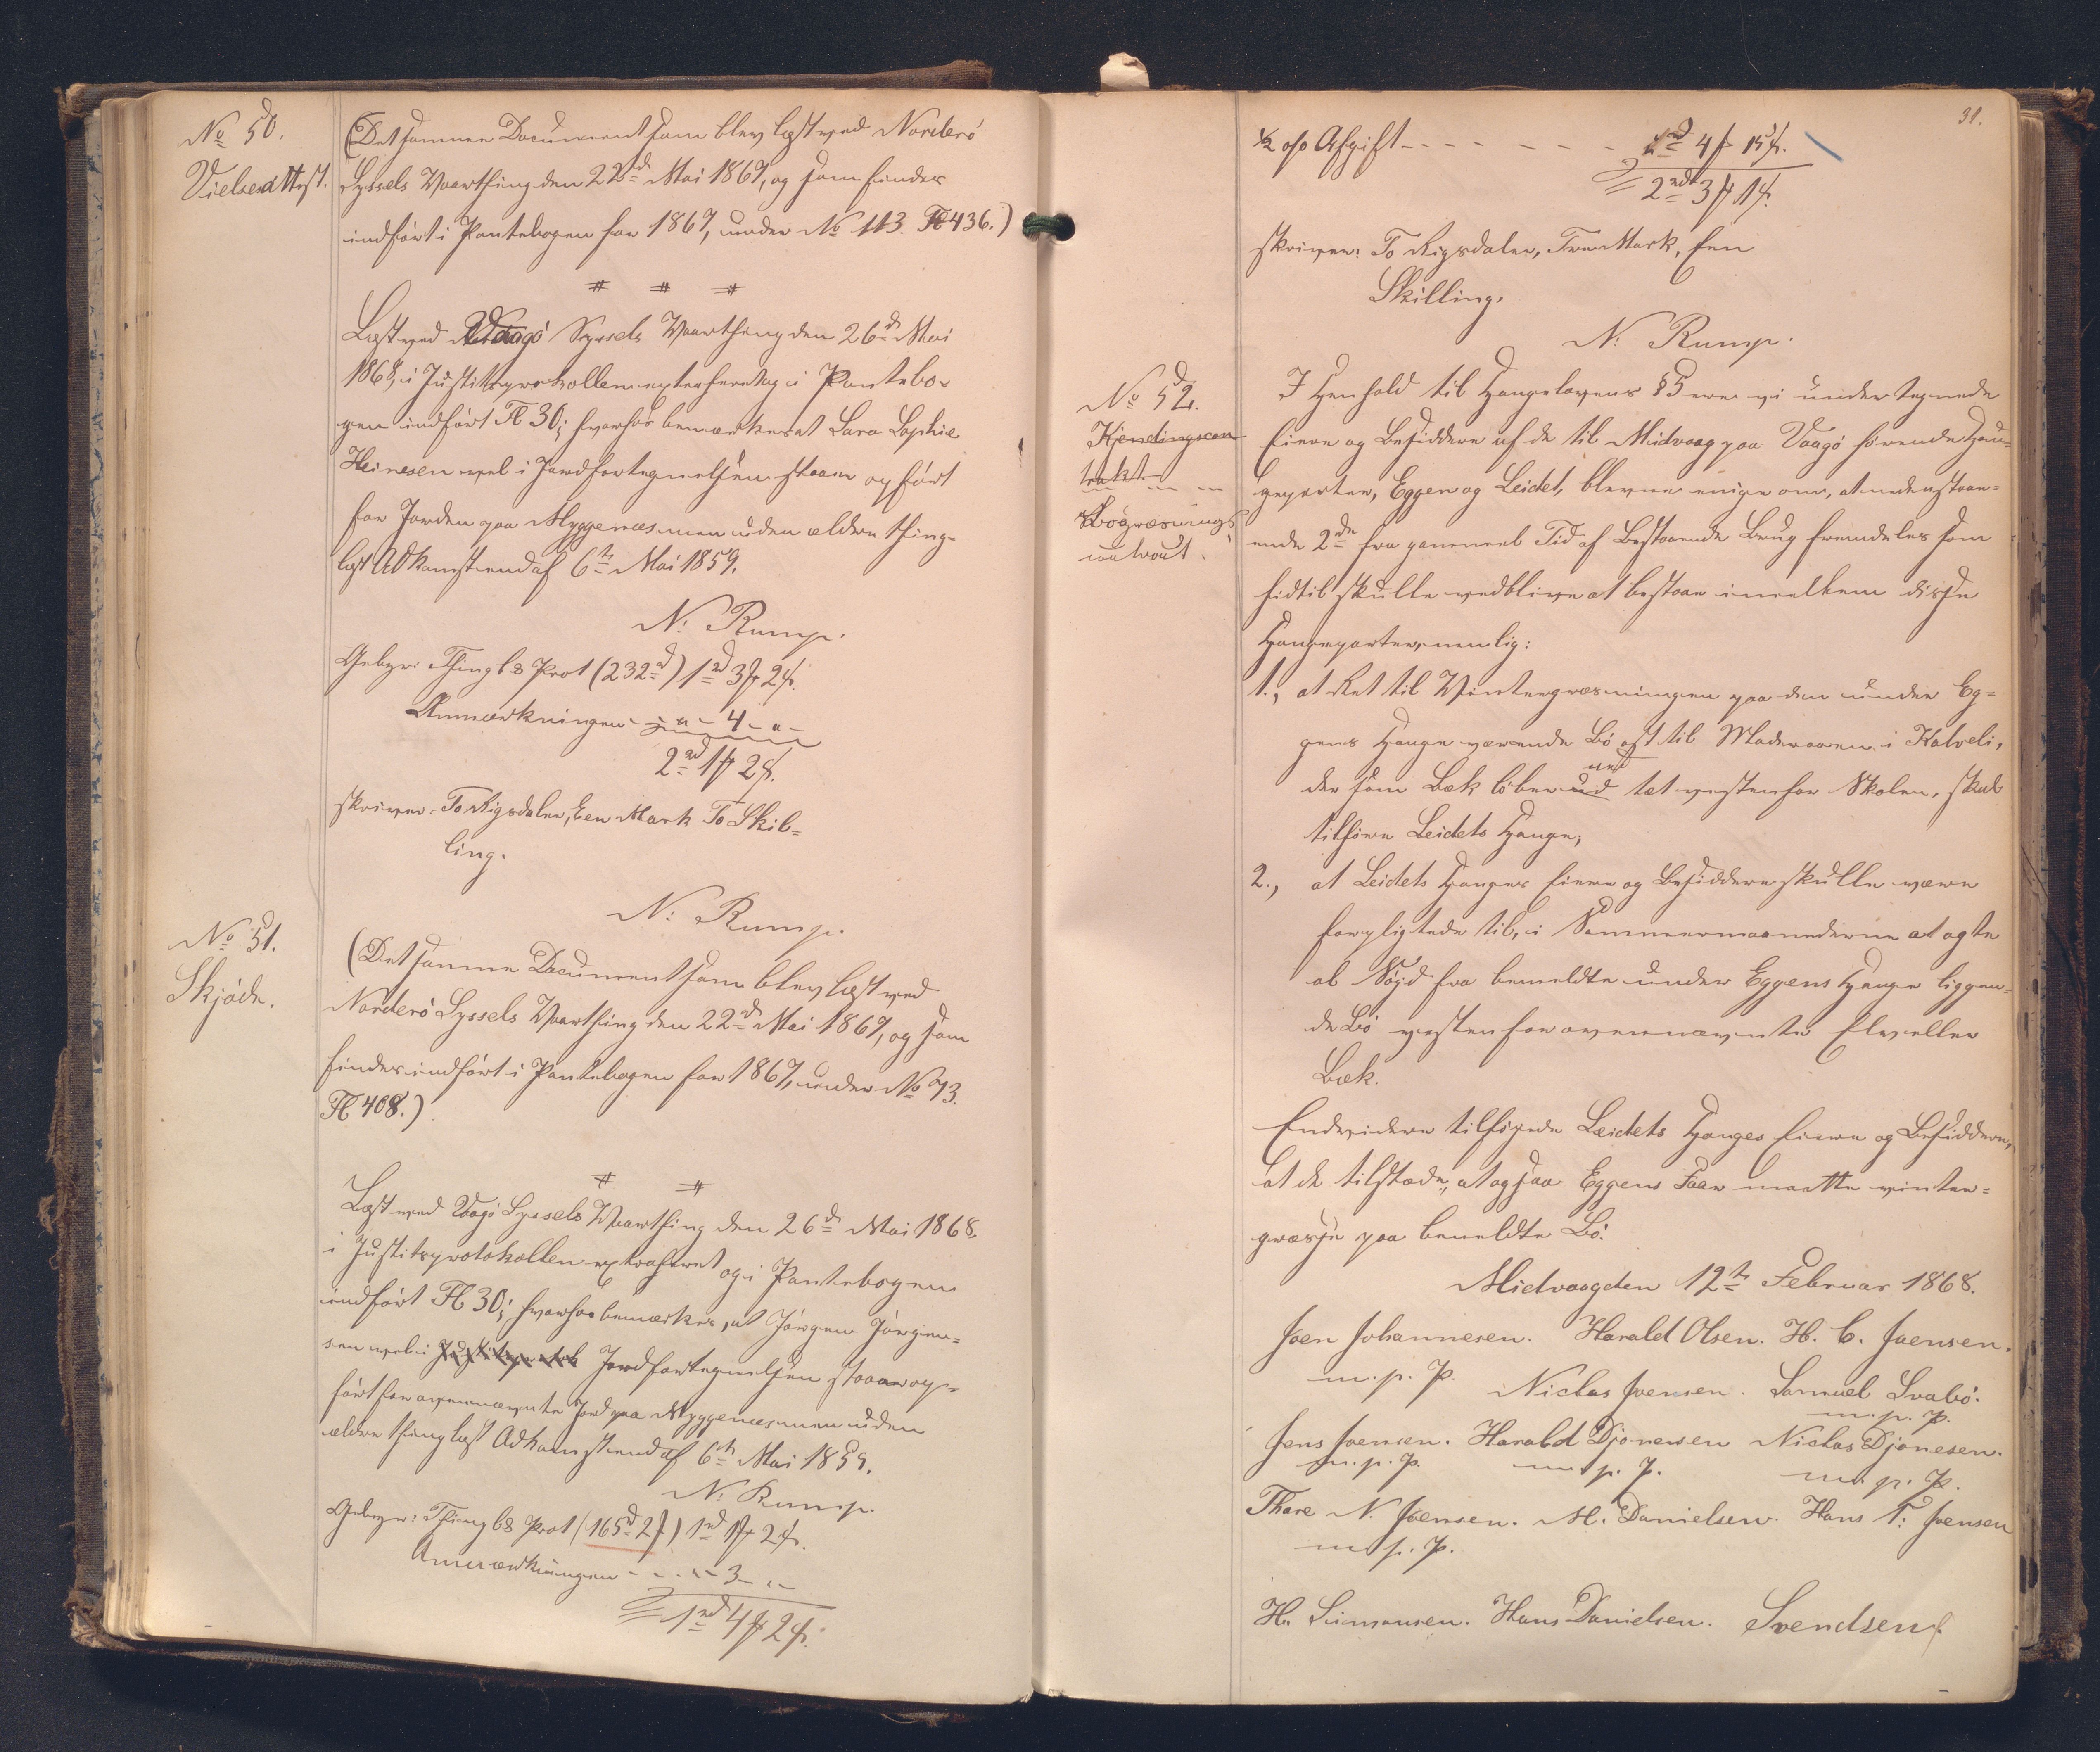 No 50.
Vielsesattest.
(Det samme Document som blev læst ved Norderö
Syssels Vaarthing den 22de Mai 1867, og som findes
indført i Pantebogen for 1867, under No 113. Fl 436.)
# # #
Læst ved Vaagö Syssels Vaarthing den 26de Mai
1868, i Justitsprotokollen extraheret og i Pantebo-
gen indført Fl 30; hvorhos bemærkes at Sara Sophie
Heinesen vel i Jordfortegnelsen staar opført
for Jorden paa Myggenæs men uden ældre thing-
læst Adkomst end af 6te Mai 1859.
N. Rump.
Gebyr: Thingl & Prot (232rd) 1rd 3 ₻ 2 ß.
Anmærkningen - " - 4 - " -
2rd 1 ₻ 2 ß.
skriver: To Rigsdaler, Een Mark To Skil-
ling.
N. Rump.
No 51.
Skjøde.
(Det samme Document som blev læst ved
Norderö Syssels Vaarthing den 22de Mai 1867, og som
findes indført i Pantebogen for 1867, under No 73.
Fl 408.)
# #
Læst ved Vaagö Syssels Vaarthing den 26de Mai 1868,
i Justitsprotokollen extraheret og i Pantebogen
indført Fl 30; hvorhos bemærkes, at Jørgen Jørgen-
sen vel i Justitsprotok Jordfortegnelsen staar op-
ført for ovennævnte Jord paa Myggenæs men uden
ældre thinglæst Adkomst end af 6te Mai 1859.
N. Rump.
Gebyr: Thingl & Prot (165rd 2 ₻) 1rd 1 ₻ 2 ß.
Anmærkningen - - - " - 3 - " -
1rd 4 ₻ 2 ß.
31.
½ o/o Afgift - - - - - - - "rd 4 ₻ 15 ß.
2rd 3 ₻ 1 ß.
skriver: To Rigsdaler, Tre Mark, Een
Skilling.
N. Rump.
No 52.
Kjendingscon
trakt
Bögræsnings
I Henhold til Haugelovens § 5 ere vi undertegnede
Eiere og Besiddere af de til Midvaag paa Vaagö hørende Hau-
geparter, Eggen og Leidet, blevne enige om, at nedenstaa-
ende 2de fra gammel Tid af bestaaende Brug fremdeles som
hidtil skulle vedblive at bestaae imellem disse
Haugeparter, nemlig:
1., at Ret til Vintergræsningen paa den under Eg-
gens Hauge værende Bö øst til Maderaaen i Kalveli,
der som Bæk løber ud ned tæt vestenfor Skolen, skal
tilhøre Leidets Hauge;
2., at Leidets Hauges Eiere og Besiddere skulle være
forpligtede til, i Sommermaanederne at agte
al Nöjd fra bemeldte under Eggens Hauge liggen-
de Bö vestenfor ovennævnte Elv eller
Bæk.
Endvidere tilføiede Leidets Hauges Eiere og Besiddere,
at de tilstæde, at ogsaa Eggens Faar maatte vinter-
græsse paa bemeldte Bö.
Midvaag den 12te Februar 1868.
Joen Johannesen. Harald Olsen. H. C. Joensen.
m. p. P.
Niclas Joensen. Samuel Svabö.
m. p. P.
Jens Joensen. Harald Djonesen Niclas Djonesen.
m. p. P. m. p. P. m. p. P.
Thare N. Joensen. M. Danielsen. Hans T. Joensen
m. p. P.
H. Simonsen. Hans Danielsen. Svendsen